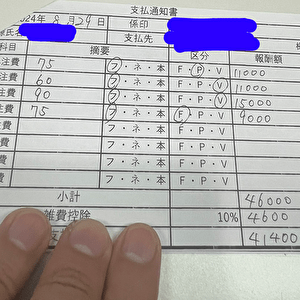 支払通知書
2024年 8月29日 係印
支払先
科目 摘要 区分 報酬額
注費 75 フ・ネ・本 F・P・V 11000
注費 60 フ・ネ・本 F・P・V 11000
注費 90 フ・ネ・本 F・P・V 15000
注費 75 フ・ネ・本 F・P・V 9000
注費 フ・ネ・本 F・P・V
注費 フ・ネ・本 F・P・V
注費 フ・ネ・本 F・P・V
費 フ・ネ・本 F・P・V
小計 46000
雑費控除 10% 4600
支 41400